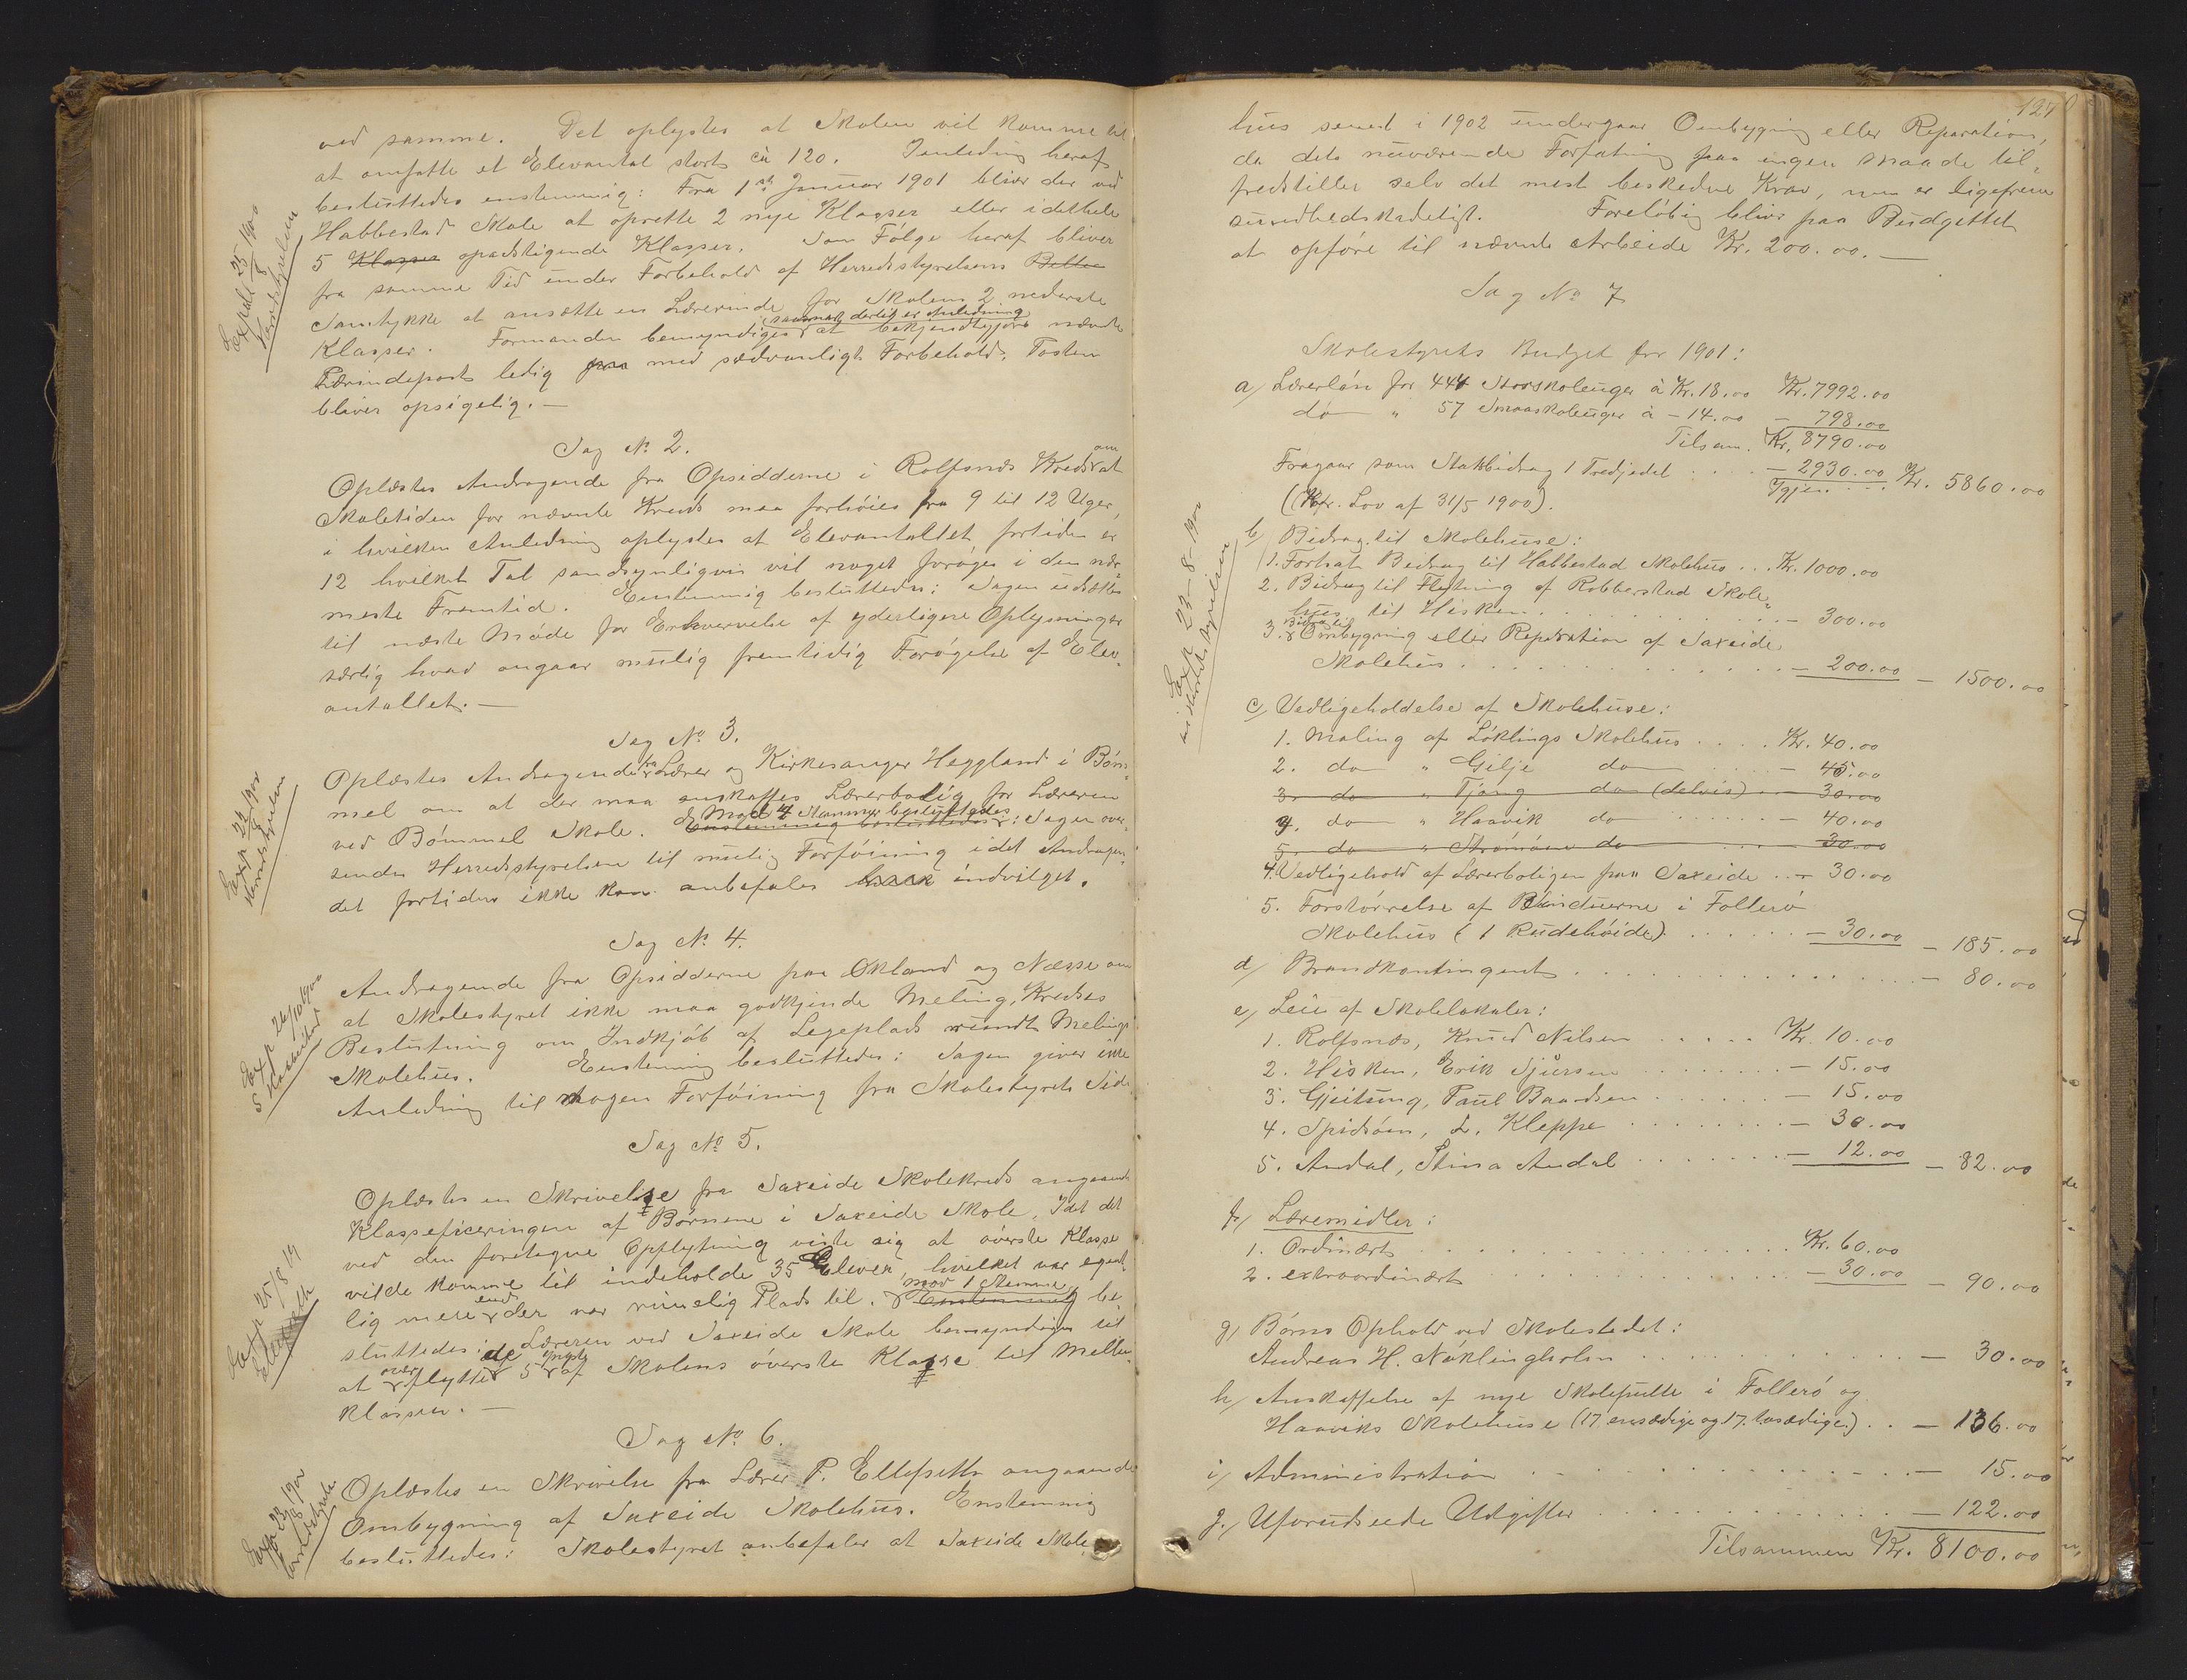 ved samme. Det oplystes at Skolen vil komme til
at omfatte et Elevantal stort ca 120. I anledning heraf
besluttedes enstemmig: Fra 1ste Januar 1901 bliver der ved
Habbestad Skole at oprette 2 nye Klasser eller i det hele
5 Klasser opadstigende Klasser. Som Følge heraf bliver
fra samme Tid under Forbehold af Herredsstyrelsens
Samtykke at ansætte en Lærerinde for Skolens 2 nederste
Klasser. Formanden bemyndiges saasnart dertil er anledning at bekjendtgjøre nævnte
Lærerindepost ledig paa med sædvanligt Forbehold. Posten
bliver opsigelig. —
Expd. 25/8 1900
Herredsstyrelsen
Sag No 2.
Oplæstes Andragende fra Opsidderne i Rolfsnæs Kreds om at
Skoletiden for nævnte Kreds maa forhøies fra 9 til 12 Uger,
i hvilken Anledning oplystes at Elevantallet fortiden er
12 hvilket Tal sandsynligvis vil noget forøges i den nær-
meste Fremtid. Enstemmig besluttedes: Sagen udsættes
til næste Møde for Erhvervelse af yderligere Oplysninger
særlig hvad angaar mulig fremtidig Forøgelse af Elev-
antallet. —
Sag No 3.
Oplæstes Andragende fra Lærer og Kirkesanger Heggland i Bøm-
mel om at der maa anskaffes Lærerbolig for Læreren
ved Bømmel Skole. Mod 4 Stemmer besluttedes Enstemmig besluttedes: Sagen over-
sendes Herredsstyrelsen til mulig Forføining idet Andragen-
det fortiden ikke kan anbefales indvilget.
Exp 22/8 1900
Herredsstyrelsen
Sag No 4.
Andragende fra Opsidderne paa Økland og Næsse om
at Skolestyret ikke maa godkjende Meling Kredses
Beslutning om Indkjøb af Legeplads rundt Melings
Skolehus. Enstemmig besluttedes: Sagen giver ikke
Anledning til nogen Forføining fra Skolestyrets Side
Exp 26/10 1900
Sag No 5.
Oplæstes en Skrivelse fra Saxeide Skolekreds angaaende
Klasseficeringen af Børnene i Saxeide Skole. Idet det
ved den foretagne Opflytning viste sig at øverste Klasse
vilde komme til indeholde 35 Elever, hvilket var egent-
lig mere end der var rimelig Plads til. mod 1 Stemme Enstemmig be-
sluttedes: Læreren ved Saxeide Skole bemyndiges til
at overflytte de 5 yngste af Skolens øverste Klasse til Mellem-
klassen. —
Exp 25/8 19
Ellefseth
Sag No 6.
Oplæstes en Skrivelse fra Lærer P. Ellefseth angaaende
Ombygning af Saxeide Skolehus. Enstemmig
besluttedes: Skolestyret anbefaler at Saxeide Skole-
Exp 22/8 1900
Herredsstyrelse
127
hus senest i 1902 undergaar Ombygning eller Reparation,
da dets nuværende Forfatning paa ingen maade til-
fredstiller selv det mest beskedne Krav, men er ligefrem
sundhedsskadeligt. Foreløbig bliver paa Budgettet
at opføre til nævnte Arbeide Kr. 200.00. —
Sag No 7
Skolestyrets Budget for 1901:
a/ Lærerløn for 444 Storskoleuger à Kr. 18.00 Kr. 7992.00
do " 57 Smaaskoleuger à - 14.00 - 798.00
Tilsam. Kr. 8790.00
Fragaar som Statsbidrag 1 Tredjedel . . . - 2930.00
Igjen . . . Kr. 5860.00
(Kfr. Lov af 31/5 1900).
b/ Bidrag til Skolehuse:
1. Fortsat Bidrag til Habbestad Skolehus . . . Kr. 1000.00
2. Bidrag til Flytning af Robberstad Skole-
hus til Hisken . . . - 300.00
3. Bidrag til Ombygning eller Reparation af Saxeide
Skolehus . . . - 200.00 - 1500.00
Exp 23-8-1900
c/ Vedligeholdelse af Skolehuse:
1. Maling af Løklings Skolehus . . . . Kr. 40.00
2. do " Gilje do - 45.00
3. do " Tjong do (delvis) . . - 30.00
3. do " Haavik do - 40.00
5. do " Strømøen do - 30.00
4. Vedligehold af Lærerboligen paa Saxeide . . - 30.00
5. Forstørrelse af Vinduerne i Follerø
Skolehus (1 Rudehøide) . . . - 30.00 - 185.00
d/ Brandkontingent . . . - 80.00
e/ Leie af Skolelokaler:
1. Rolfsnæs, Knud Nilsen . . . Kr. 10.00
2. Hisken, Erik Sjursen . . . - 15.00
3. Gjeitung, Paul Baardsen . . . - 15.00
4. Spidsøen, L. Kleppe . . . - 30.00
5. Andal, Stina Andal . . . - 12.00 - 82.00
f/ Læremidler:
1. Ordinært . . . Kr. 60.00
2. extraordinært . . . - 30.00 - 90.00
g/ Børns Ophold ved Skolestedet:
Andreas H. Nøklingholm . . . - 30.00
h/ Anskaffelse af nye Skolepulte i Follerø og
Haaviks Skolehuse (17 ensædige og 17 tosædige) . . - 136.00
i/ Administration . . . - 15.00
j./ Uforudseede Udgifter . . . - 122.00
Tilsammen Kr. 8100.00